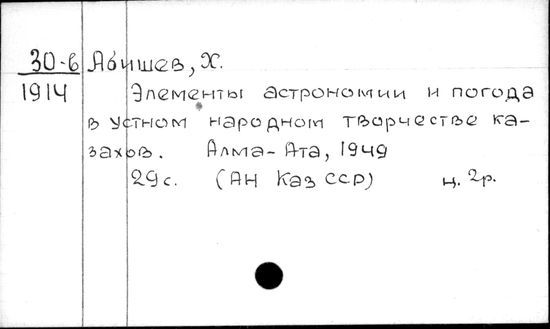 30-6 Абишев, Х.
1914 Элементы астрономии и погода
в устном народном творчестве ка-
захов. Алма-Ата, 1949
29с. (АН Каз ССР) ц. 2р.